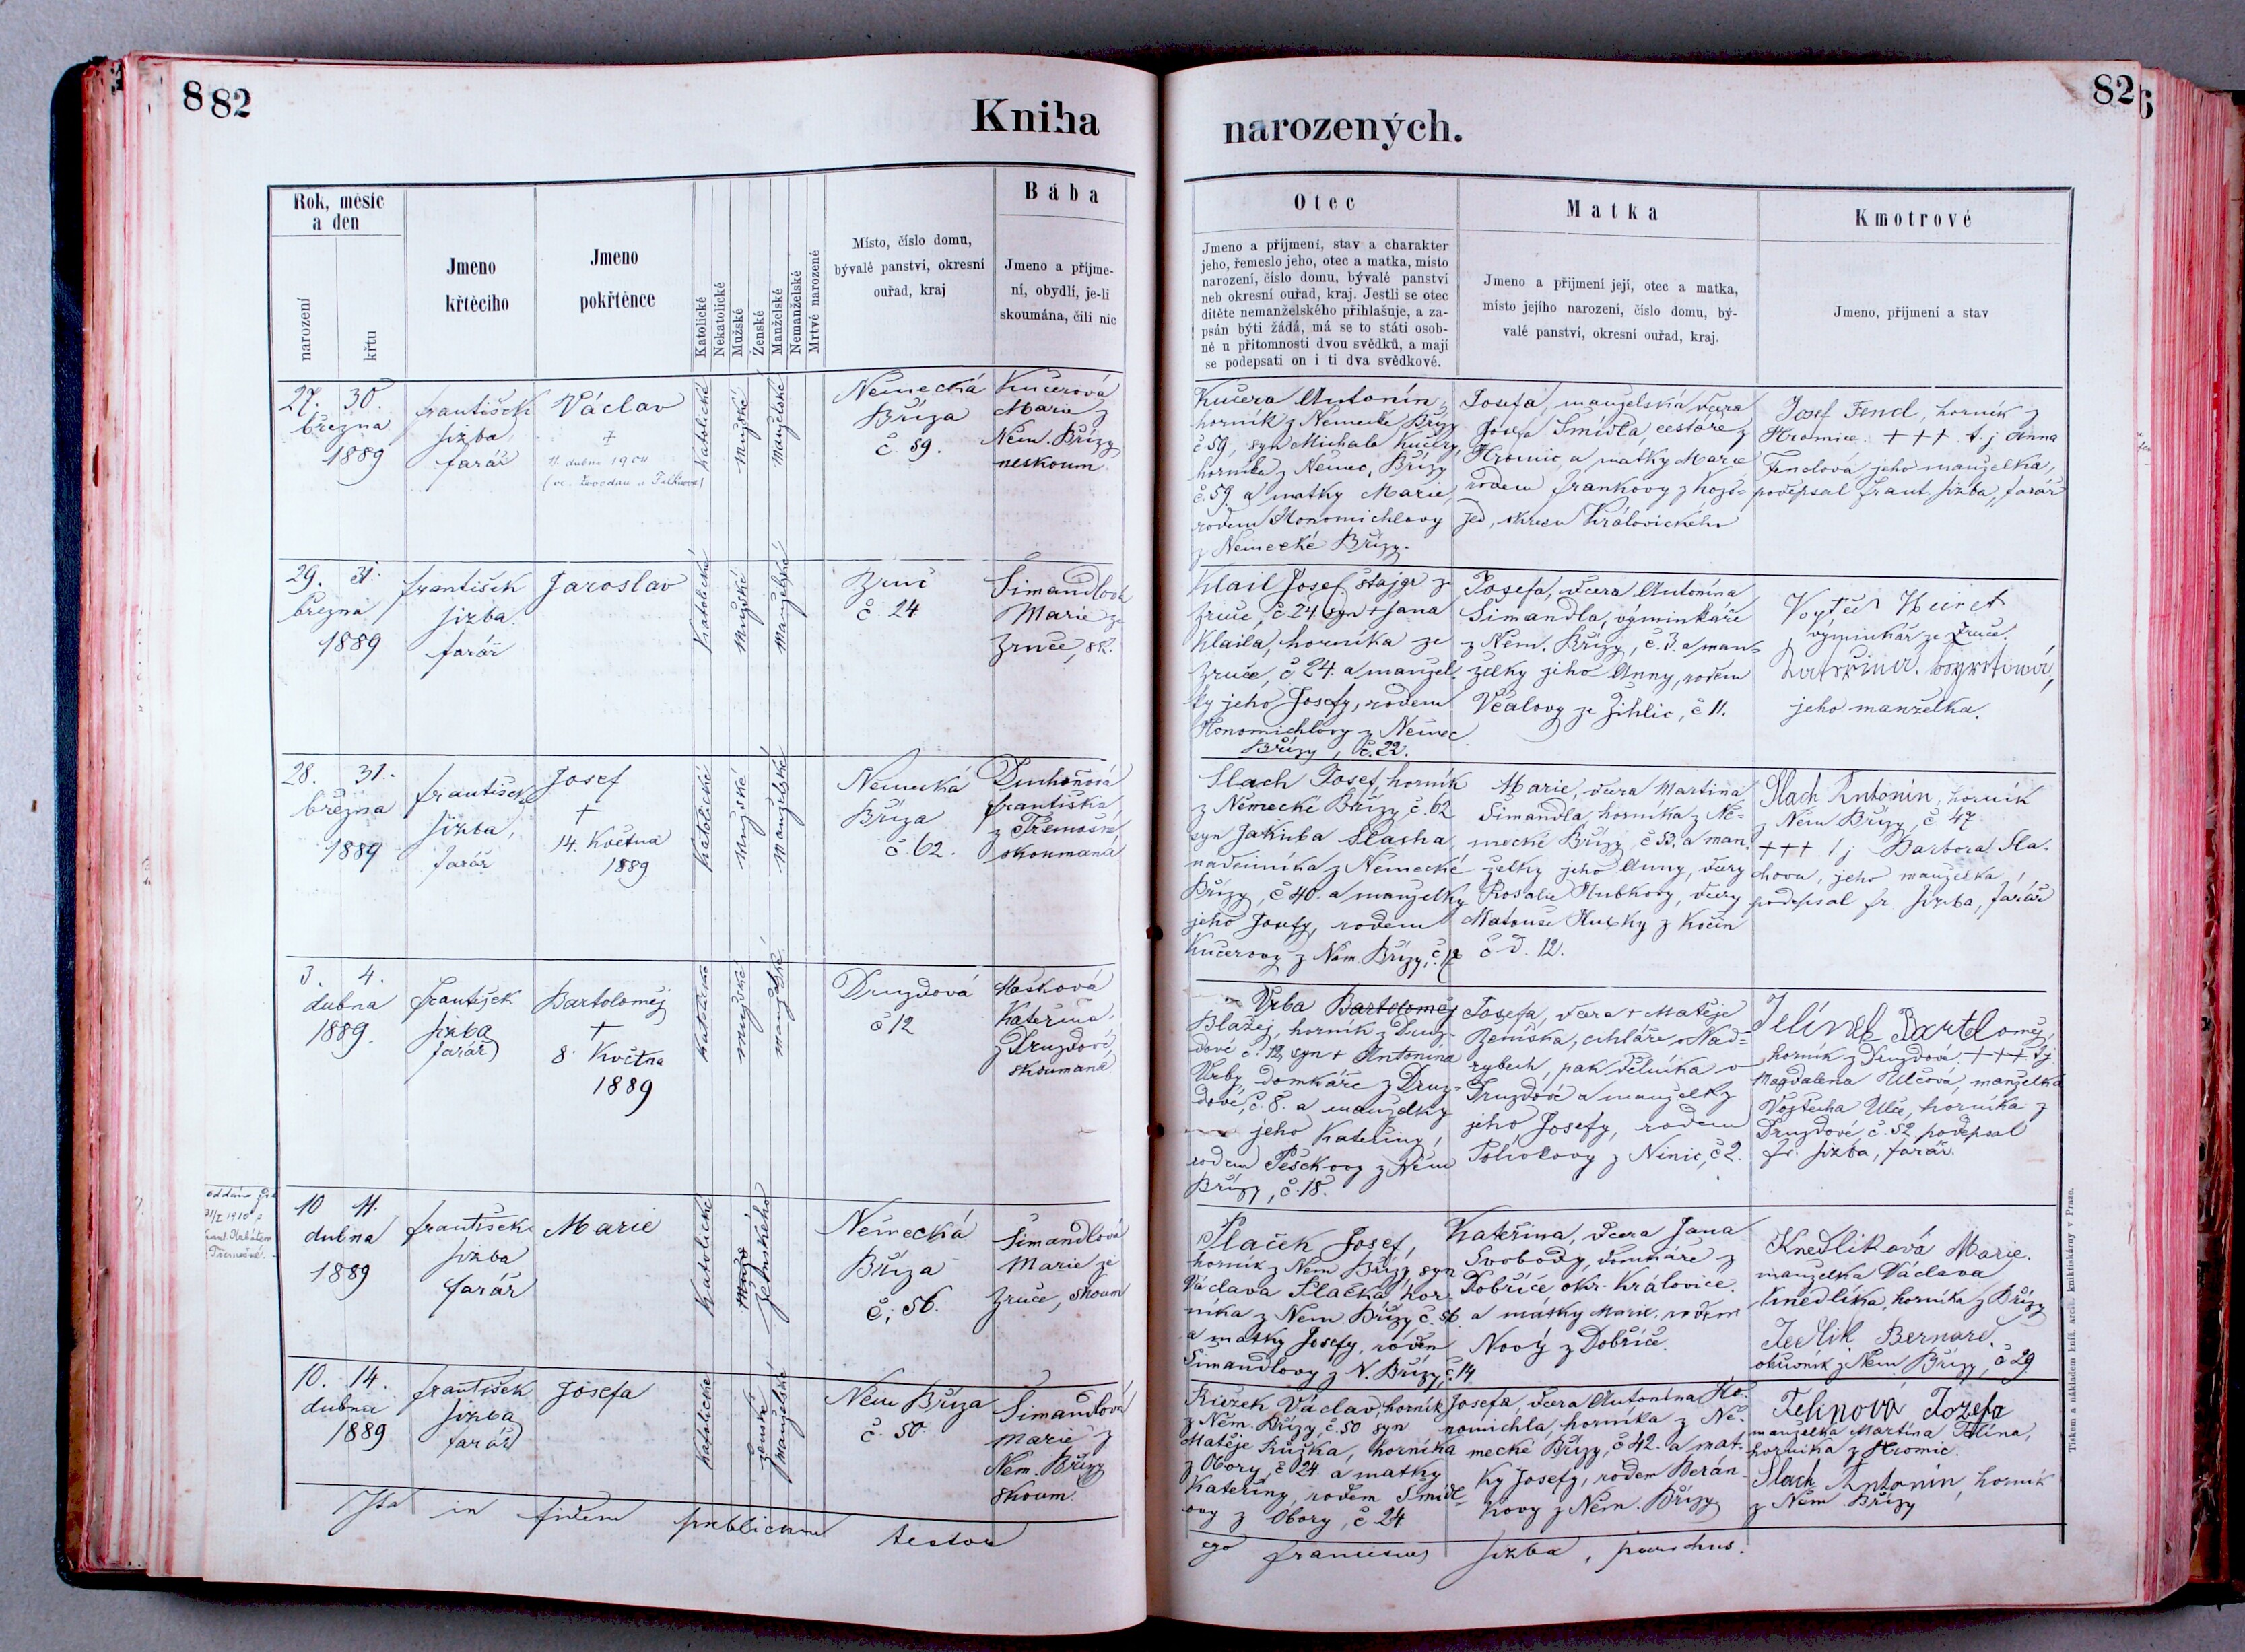 8 82
Kniha
narozených.
82
Rok, měsíc
a den
narození
křtu
Jmeno
křtěcího
Jmeno
pokřtěnce
Katolické
Nekatolické
Mužské
Ženské
Manželské
Nemanželské
Mrtvé narozené
Místo, číslo domu,
bývalé panství, okresní
ouřad, kraj
Bába
Jmeno a příjme-
ní, obydlí, je-li
skoumána, čili nic
Otec
Jmeno a příjmení, stav a charakter
jeho, řemeslo jeho, otec a matka, místo
narození, číslo domu, bývalé panství
neb okresní ouřad, kraj. Jestli se otec
dítěte nemanželského přihlašuje, a za-
psán býti žádá, má se to státi osob-
ně u přítomnosti dvou svědků, a mají
se podepsati on i ti dva svědkové.
Matka
Jmeno a přijmení její, otec a matka,
místo jejího narození, číslo domu, bý-
valé panství, okresní ouřad, kraj.
Kmotrové
Jmeno, příjmení a stav
27. 30.
března
1889
František
Jizba,
farář
Václav
†
11. dubna 1904
katolické
mužské
manželské
Německá
Bříza
č. 59.
Kučerová
Marie z
Něm. Břízy
neskoum.
Kučera Antonín,
horník z Německé Břízy
č 59, syn Michala Kučery,
horníka z Němec. Břízy
č. 59 a matky Marie,
rodem Honomichlovy
z Německé Břízy.
Josefa, manželská dcera
Josefa Šmídla, cestáře z
Hromic, a matky Marie
rodem Frankovy z Hoz-
jed, okresu Královického
Josef Fencl, horník z
Hromice. +++ t. j Anna
Fenclová, jeho manželka,
podepsal Frant. Jizba, farář
29. 31.
března
1889
František
Jizba.
farář
Jaroslav
Katolické
Mužské
Manželské
Zruč
č. 24
Šimandlová
Marie ze
Zruče, sk.
Klail Josef. štajgr ze
Zruče, č 24 syn + Jana
Klaila, horníka ze
Zruče, č 24. a manžel-
ky jeho Josefy, rodem
Honomichlovy z Němec
Břízy, č. 22.
Josefa, dcera Antonína
Šimandla, výminkáře
z Něm. Břízy, č. 3. a man-
želky jeho Anny, rodem
Včalovy ze Žihlic, č 11.
výminkář ze Zruče.
jeho manželka.
28. 31.
března
1889
František
Jizba,
farář
Josef
†
14. Května
1889
Katolické
Mužské
Manželské
Německá
Bříza
č. 62.
Duchoňová
Františka,
z Třemošné
skoumaná
Slach Josef, horník
z Německé Břízy č. 62
syn Jakuba Slacha,
nádeníka z Německé
Břízy, č 40. a manželky
jeho Josefy, rodem
Kučerovy z Něm. Břízy, č. 12
Marie, dcera Martina
Šimandla, horníka z Ně-
mecké Břízy, č 53. a man-
želky jeho Anny, dcery
Rosalie Hubkovy, dcery
Matouše Hubky z Kočin
č. d. 12.
Slach Antonín, horník
z Něm Břízy, č. 47
+++ t j Barbora Sla-
chova, jeho manželka,
podepsal fr. Jizba, farář
3. 4.
dubna
1889.
František
Jizba
farář
Bartoloměj
†
8. Května
1889
Katolické
Mužské
manželské
Druzdová
č 12
Mašková
Kateřina,
z Druzdové
skoumaná
Vrba Bartoloměj
Blažej, horník z Druz-
dové č. 12, syn + Antonína
Vrby, domkáře z Druz-
dové, č. 8. a manželky
jeho Kateřiny,
rodem Peškovy z Něm
Břízy, č. 18.
Josefa, dcera + Matěje
Zemíska, cihláře v Nad-
rybech, pak dělníka v
Druzdové a manželky
jeho Josefy, rodem
Polívkovy z Ninic, č 2.
Jelínek Bartoloměj,
horník z Druzdové, +++ t j
Magdalena Ulčová, manželka
Vojtěcha Ulče, horníka z
Druzdové č. 52 podepsal
fr. Jizba, farář.
10 11.
dubna
1889
František
Jizba
farář
Marie
Katolické
ženského
Německá
Bříza
č. 56.
Šimandlová
Marie ze
Zruče, skoum
Plaček Josef,
horník z Něm Břízy syn
Václava Plačka, hor-
níka z Nem Břízy, č. 56
a matky Josefy, rodem
Šimandlovy z N. Břízy, č. 14
Kateřina, dcera Jana
Svobody, domkáře z
Dobříče okr. Královice.
a matky Marie, rodem
Nový z Dobříče.
Knedlíková Marie.
manželka Václava
Knedlíka, horníka z Břízy
Jedlik Bernard.
obuvník z Něm. Břízy, č 29
10. 14.
dubna
1889
František
Jizba
farář
Josefa
Katolické
Ženské
Manželské
Něm Bříza
č. 50
Šimandlová
Marie z
Něm. Břízy
skoum.
Růžek Václav, horník
z Něm. Břízy, č. 50 syn
Matěje Růžka, horníka
z Obory, č 24. a matky
Kateřiny, rodem Šmídl-
ovy z Obory, č 24
Josefa, dcera Antonína Ho-
nomichla, horníka z Ně-
mecké Břízy, č 42. a mat-
ky Josefy, rodem Berán-
kovy z Něm. Břízy
Felinová Jozefa
manželka Martina Felína,
horníka z Hromic.
Slach Antonín, horník
z Něm Břízy
Ita in fidem publicam testor
ego Franciscus Jizba, parochus.
Tiskem a nákladem kníž. arcib. knihtiskárny v Praze.